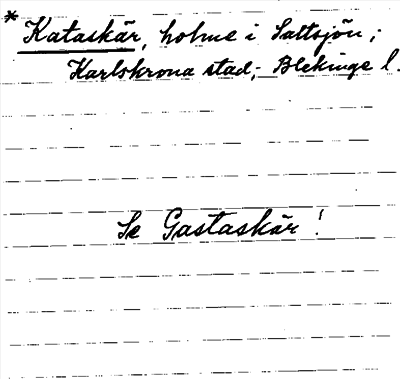 * Kataskär, holme i Saltsjön;
Karlskrona stad; Blekinge l.
Se Gastaskär!